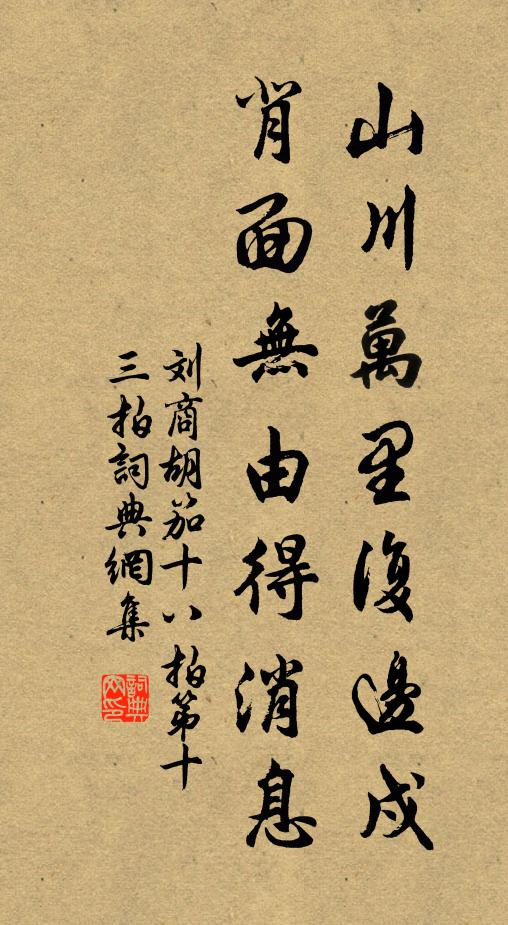 山川萬里復邊戍
背面無由得消息
刘商胡笳十八拍第十
三拍詞典網集
詞典
网印